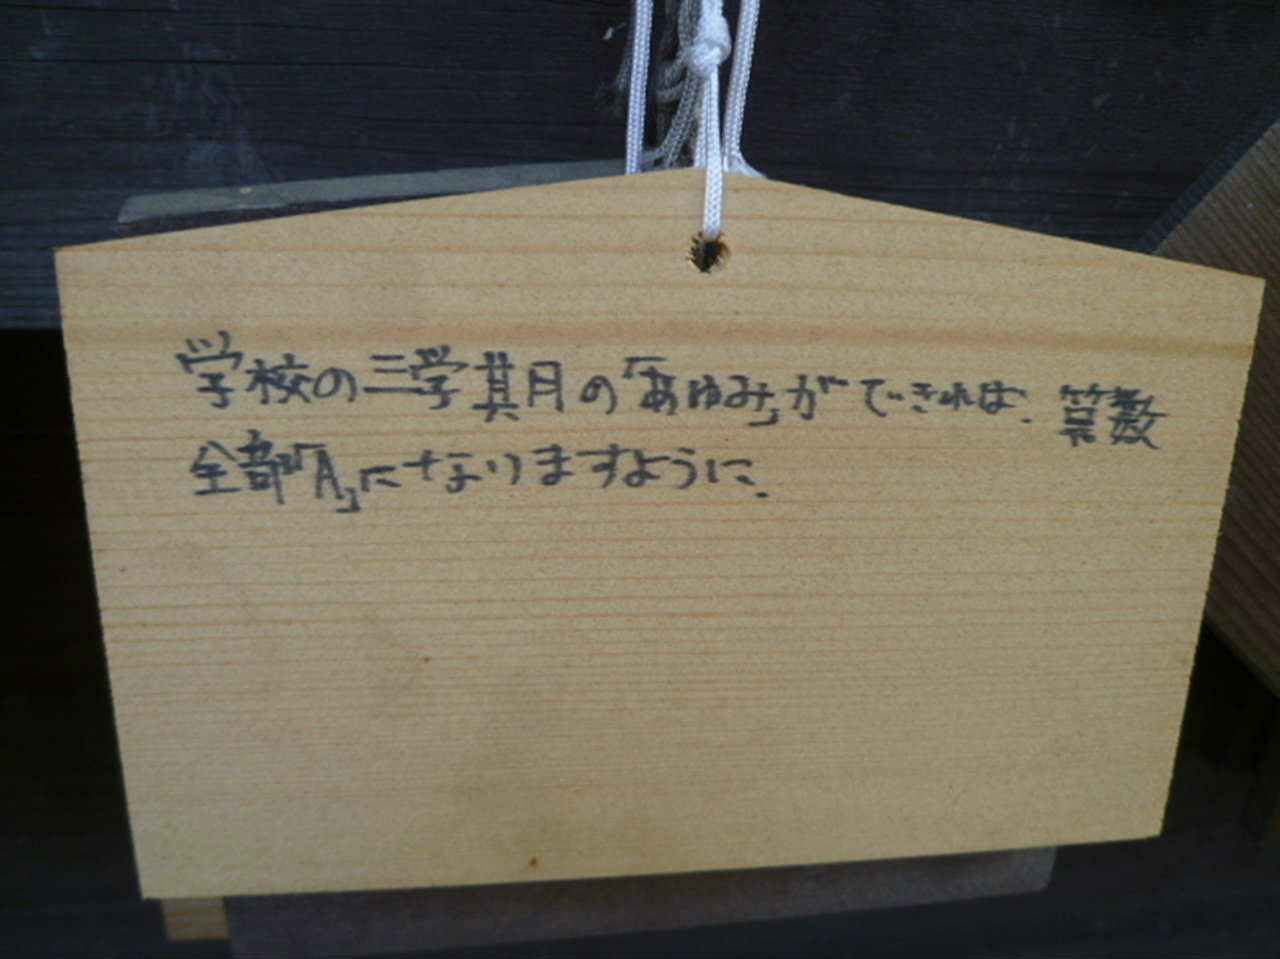 学校の三学期の「あゆみ」ができれば、算数
全部「A」になりますように、